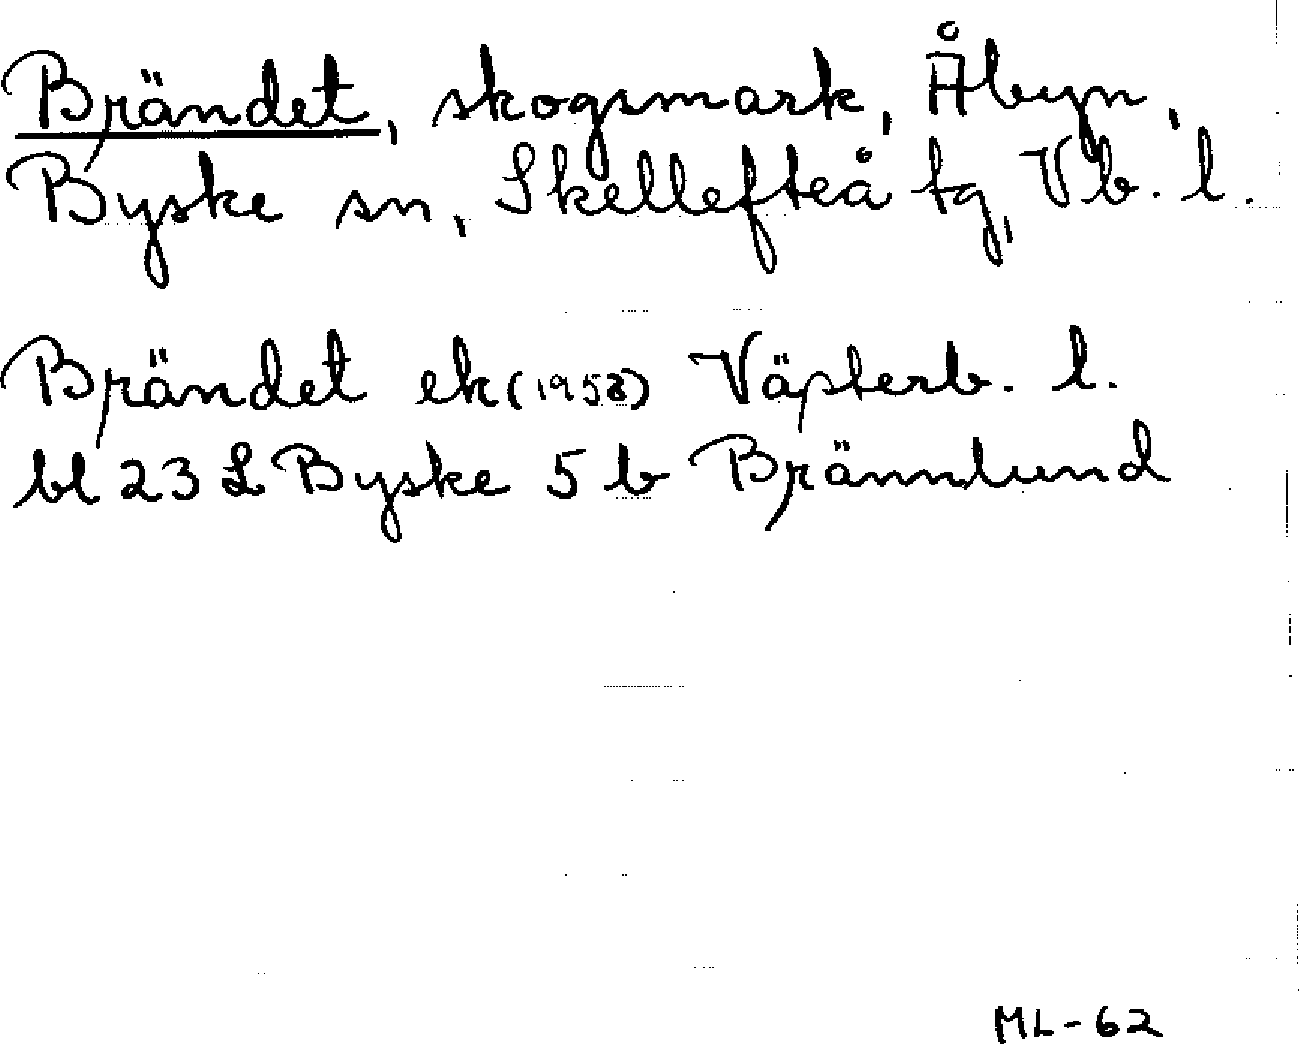 Brändet, skogsmark, Åbyn,
Byske sn, Skellefteå tg, Vb. l.
Brändet ek (1958) Västerb. l.
bl 23 L Byske 5 b Brännlund
ML-62